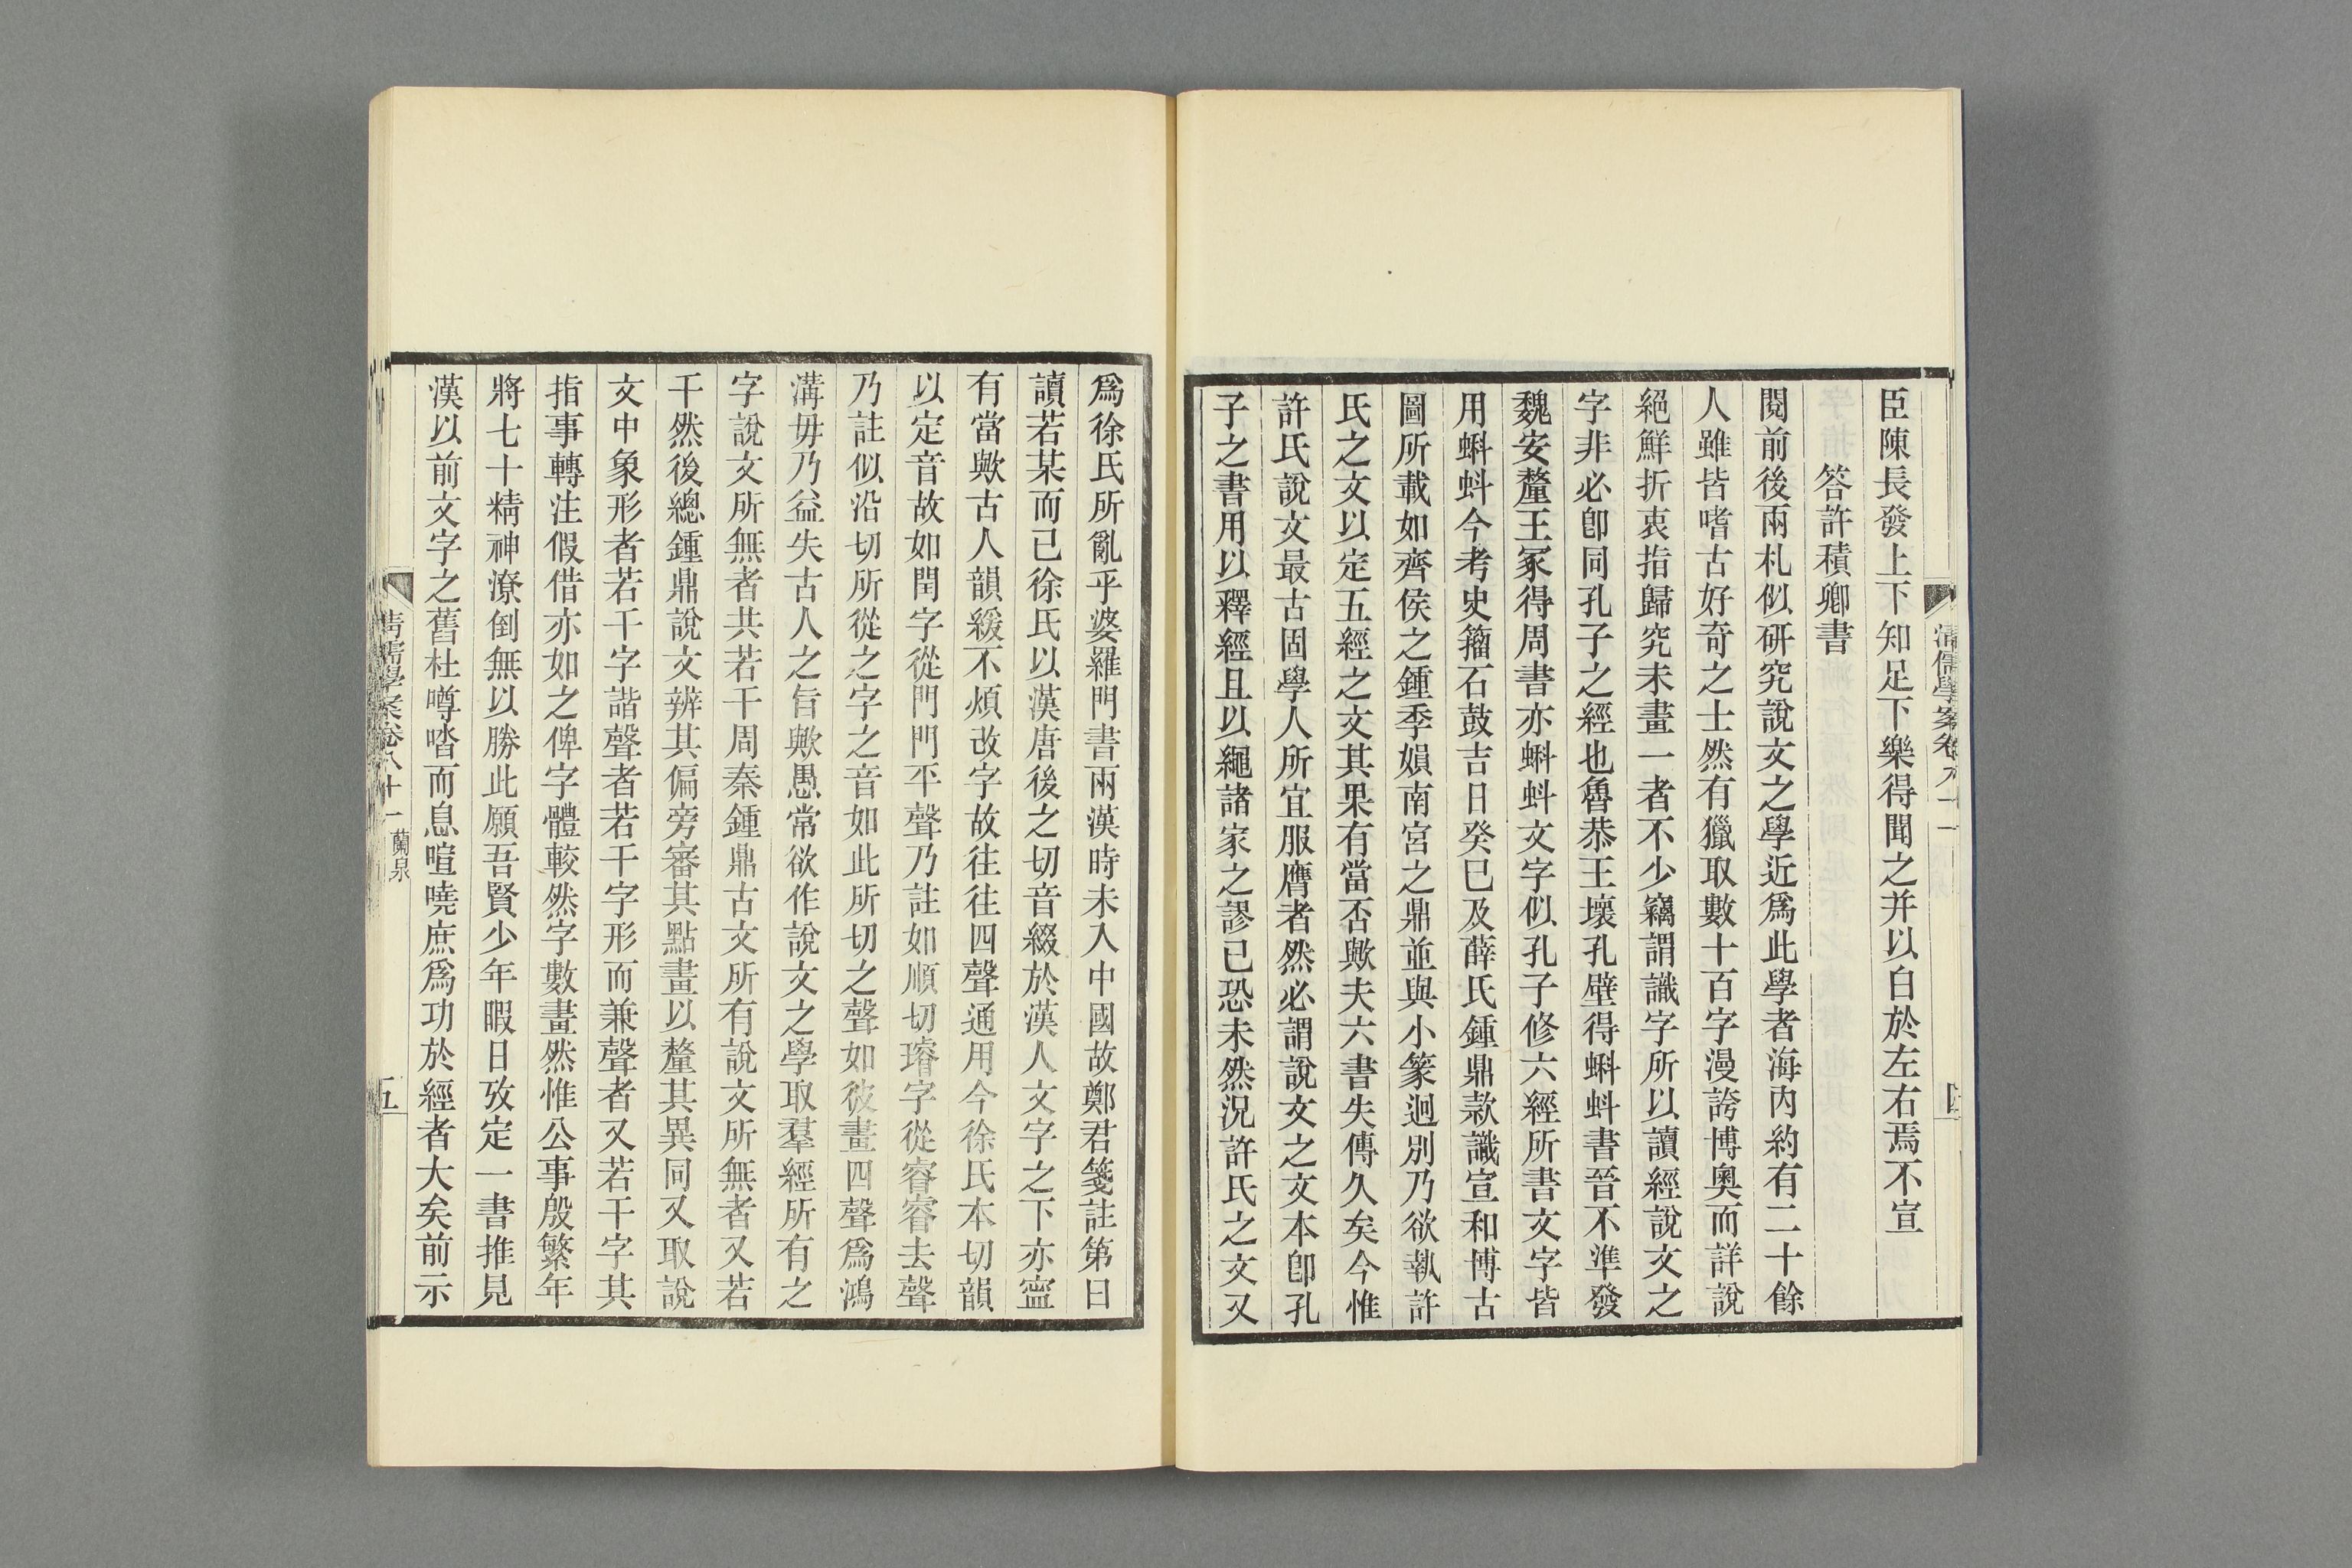 臣陳長發上下知足下樂得聞之并以白於左右焉不宣
答許積卿書
閱前後兩札似研究說文之學近爲此學者海內約有二十餘
人雖皆嗜古好奇之士然有獵取數十百字漫誇博奧而詳說
絕鮮折衷指歸究未畫一者不少竊謂識字所以讀經說文之
字非必卽同孔子之經也魯恭王壞孔壁得蝌蚪書晉不準發
魏安釐王冢得周書亦蝌蚪文字似孔子修六經所書文字皆
用蝌蚪今考史籀石鼓吉日癸巳及薛氏鍾鼎款識宣和博古
圖所載如齊侯之鍾季娟南宮之鼎並與小篆迥別乃欲執許
氏之文以定五經之文其果有當否歟夫六書失傳久矣今惟
許氏說文最古固學人所宜服膺者然必謂說文之文本卽孔
子之書用以釋經且以繩諸家之謬已恐未然況許氏之文又
爲徐氏所亂乎婆羅門書兩漢時未入中國故鄭君箋註第曰
讀若某而已徐氏以漢唐後之切音綴於漢人文字之下亦寍
有當歟古人韻緩不煩改字故往往四聲通用今徐氏本切韻
以定音故如閏字從門門平聲乃註如順切璿字從睿睿去聲
乃註似沿切所從之字之音如此所切之聲如彼畫四聲爲鴻
溝毋乃益失古人之旨歟愚常欲作說文之學取羣經所有之
字說文所無者共若干周秦鍾鼎古文所有說文所無者又若
干然後總鍾鼎說文辨其偏旁審其點畫以釐其異同又取說
文中象形者若干字諧聲者若干字形而兼聲者又若干字其
指事轉注假借亦如之俾字體較然字數畫然惟公事殷繁年
將七十精神潦倒無以勝此願吾賢少年暇日攷定一書推見
漢以前文字之舊杜噂喈而息喧嘵庶爲功於經者大矣前示
清儒學案卷八十一 蘭泉
五